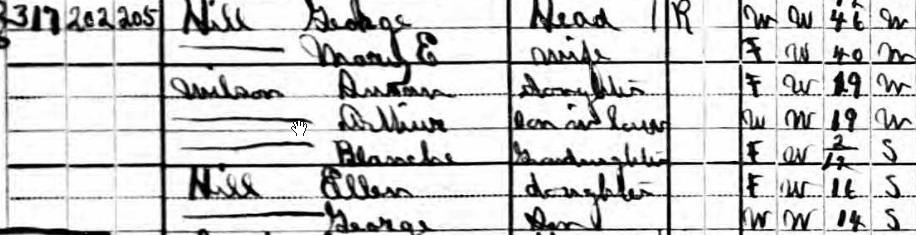 317 202 205 Hill George Head R M W 46 M
Mary E Wife F W 40 M
Wilson daughter F W 19 M
Arthur Son in law M W 19 M
Blanche Grandaughter F W 2/12 S
Hill Ellen daughter F W 16 S
George Son M W 14 S